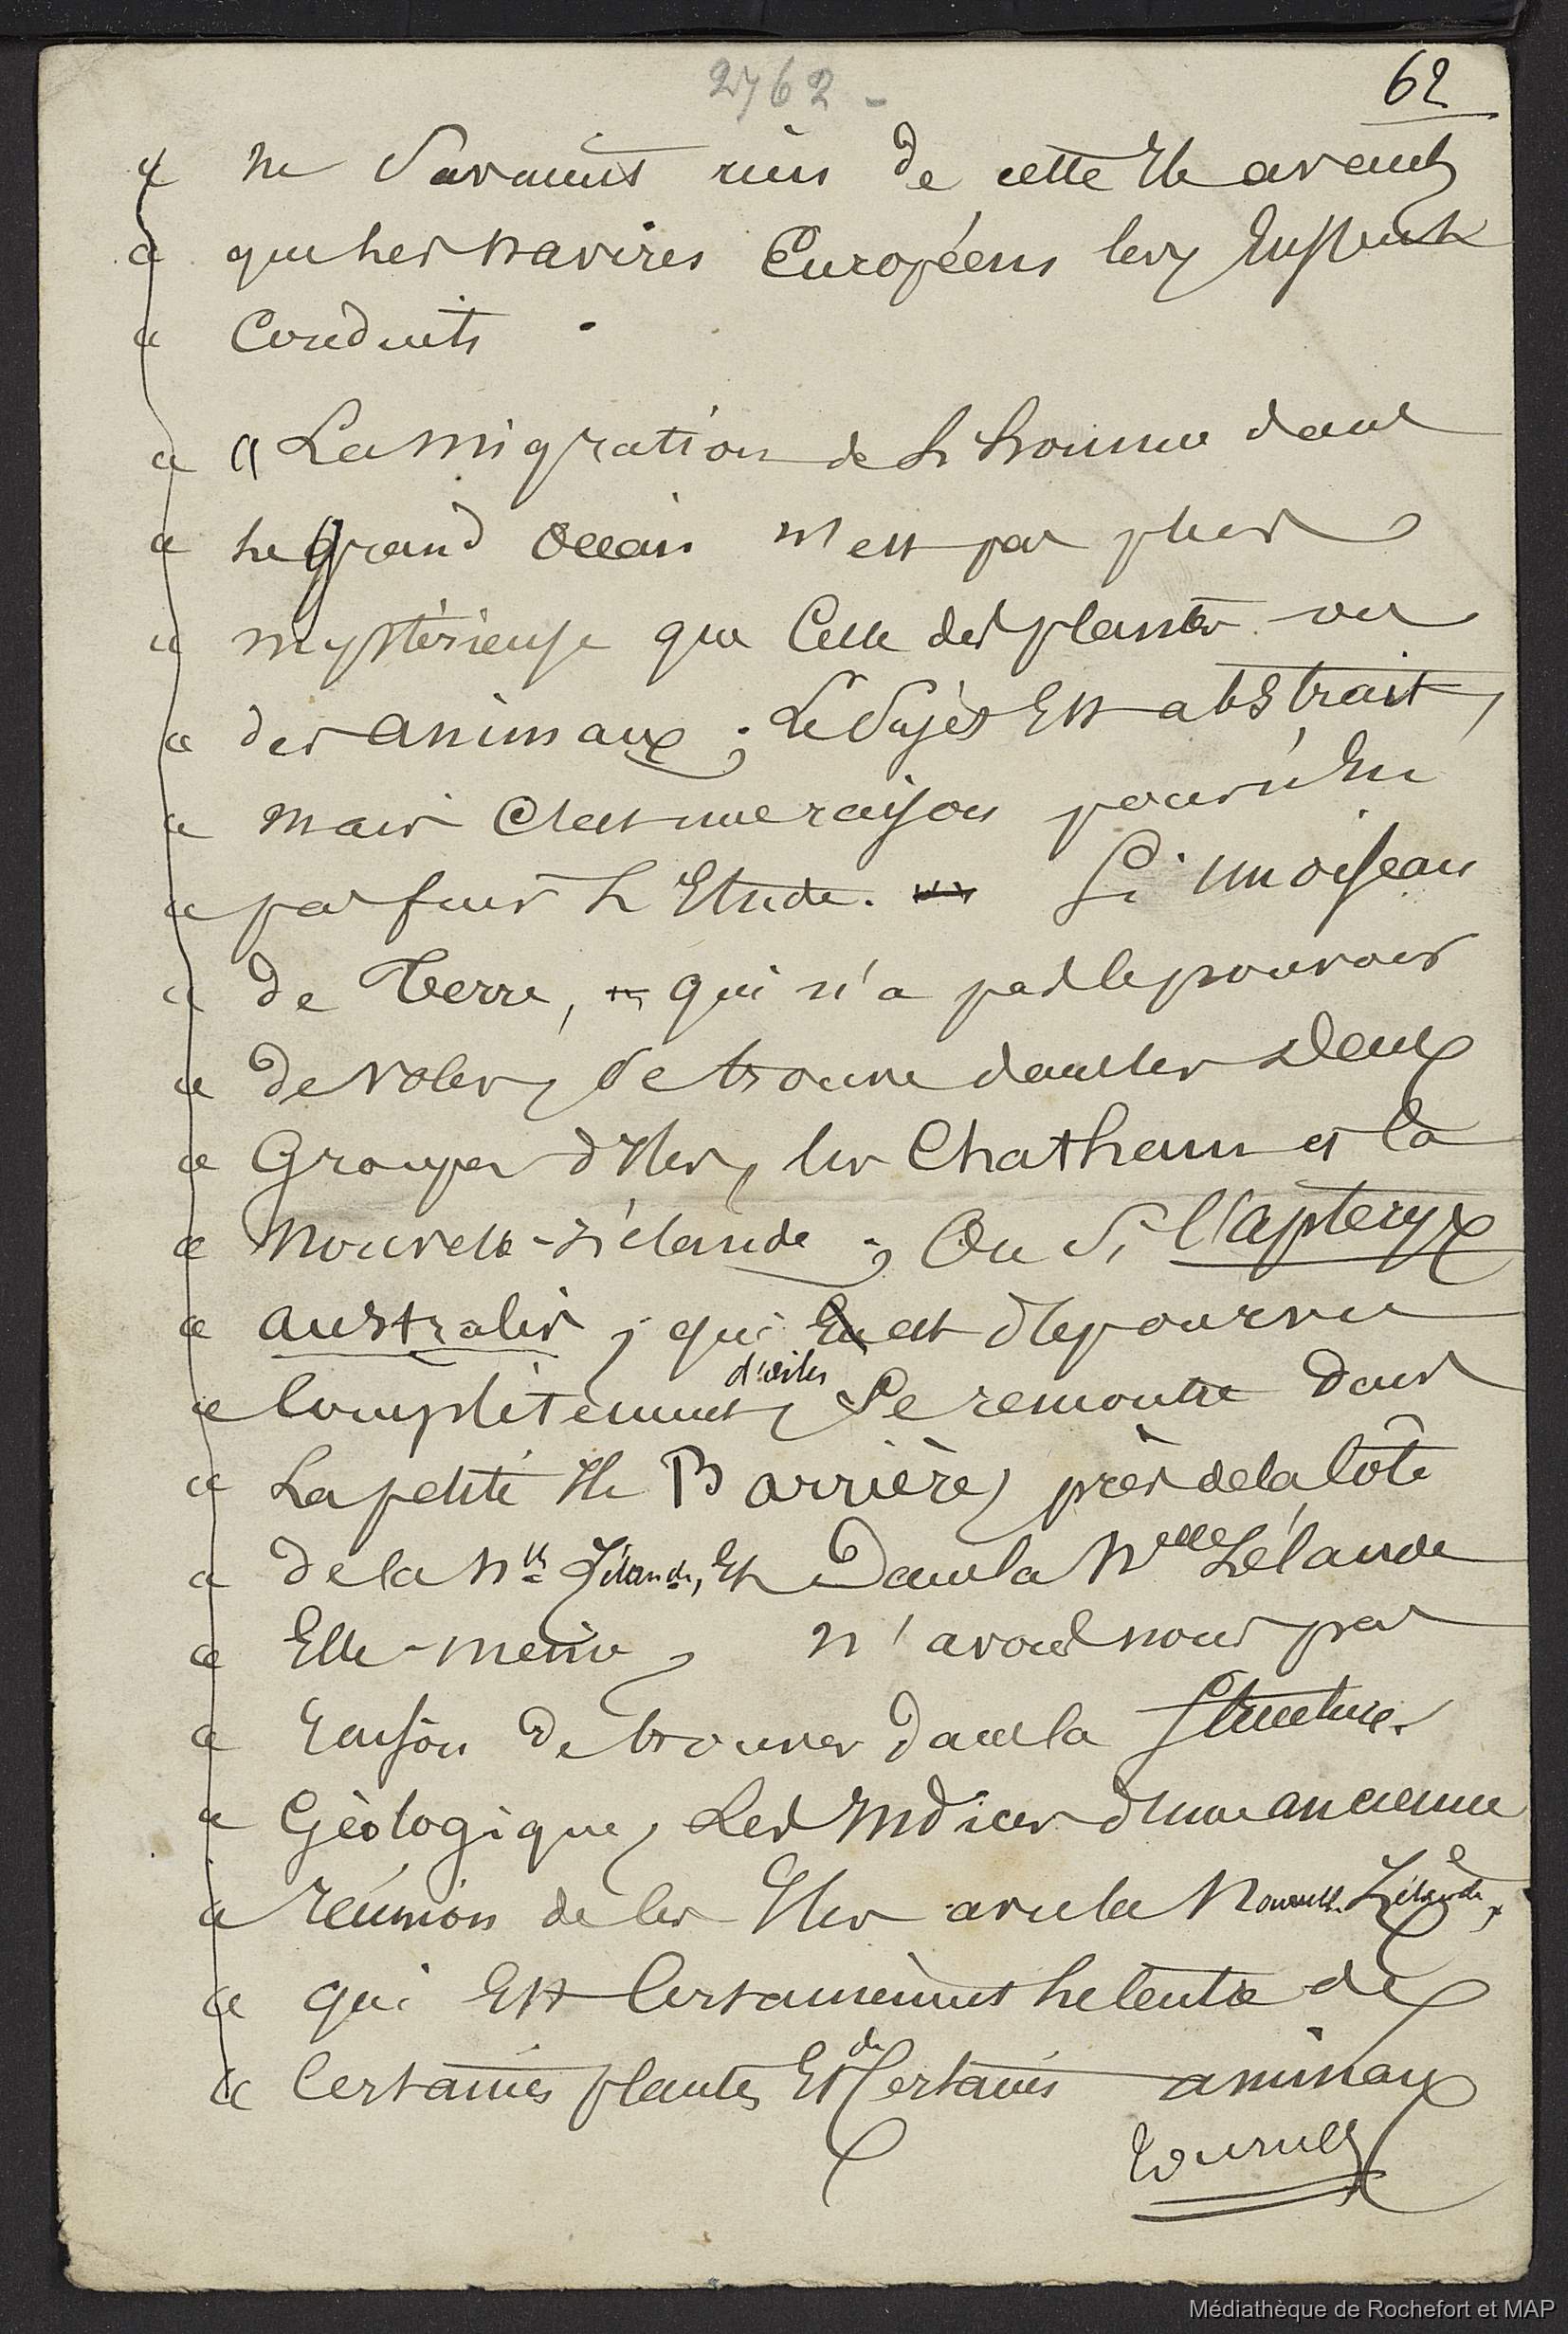 2762 -
62
« ne savaient rien de cette Ile avant
« que les navires Européens les y Eussent
« Conduits.
« « La migration de l'homme dans
« le grand Océan n'est pas plus
« mystérieuse que Celle des plantes ou
« des animaux ; Le Sujet Est abstrait,
« mais C'est une raison pour n'En
« pas fuir L'Etude. Si un oiseau
« de Terre, qui n'a pas le pouvoir
« de voler, Se trouve dans les deux
« Groupes d'Iles, les Chatham et la
« Nouvelle-Zélande ; Ou Si l'apteryx
« australis, qui est dépourvu
« Complètement d'ailes, Se remontre dans
« La petite Ile Barrière, près de la Côte
« de la Nlle Zélande, Et Dans la Nelle Zélande
« Elle-même, n'avons nous pas
« raison de trouver dans la Structure
« Géologique, Les Indices d'une ancienne
« réunion de ces Iles avec la Nouvelle Zélande,
« qui Est Certainement le Centre de
« Certaines plantes Et de Certains animaux
Tournez
Médiathèque de Rochefort et MAP